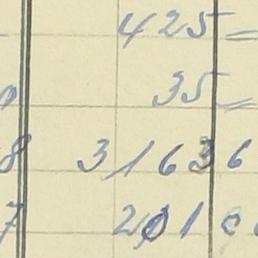 425 =
35 =
8 316 36
7 201